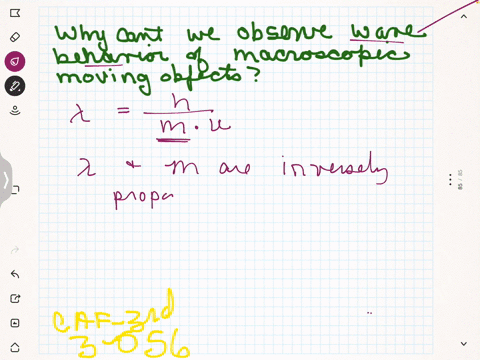 Why can't we observe wave
behavior of macroscopic
moving objects?
λ = h / m · u
λ & m are inversely
propo
CAF-3rd
3-056